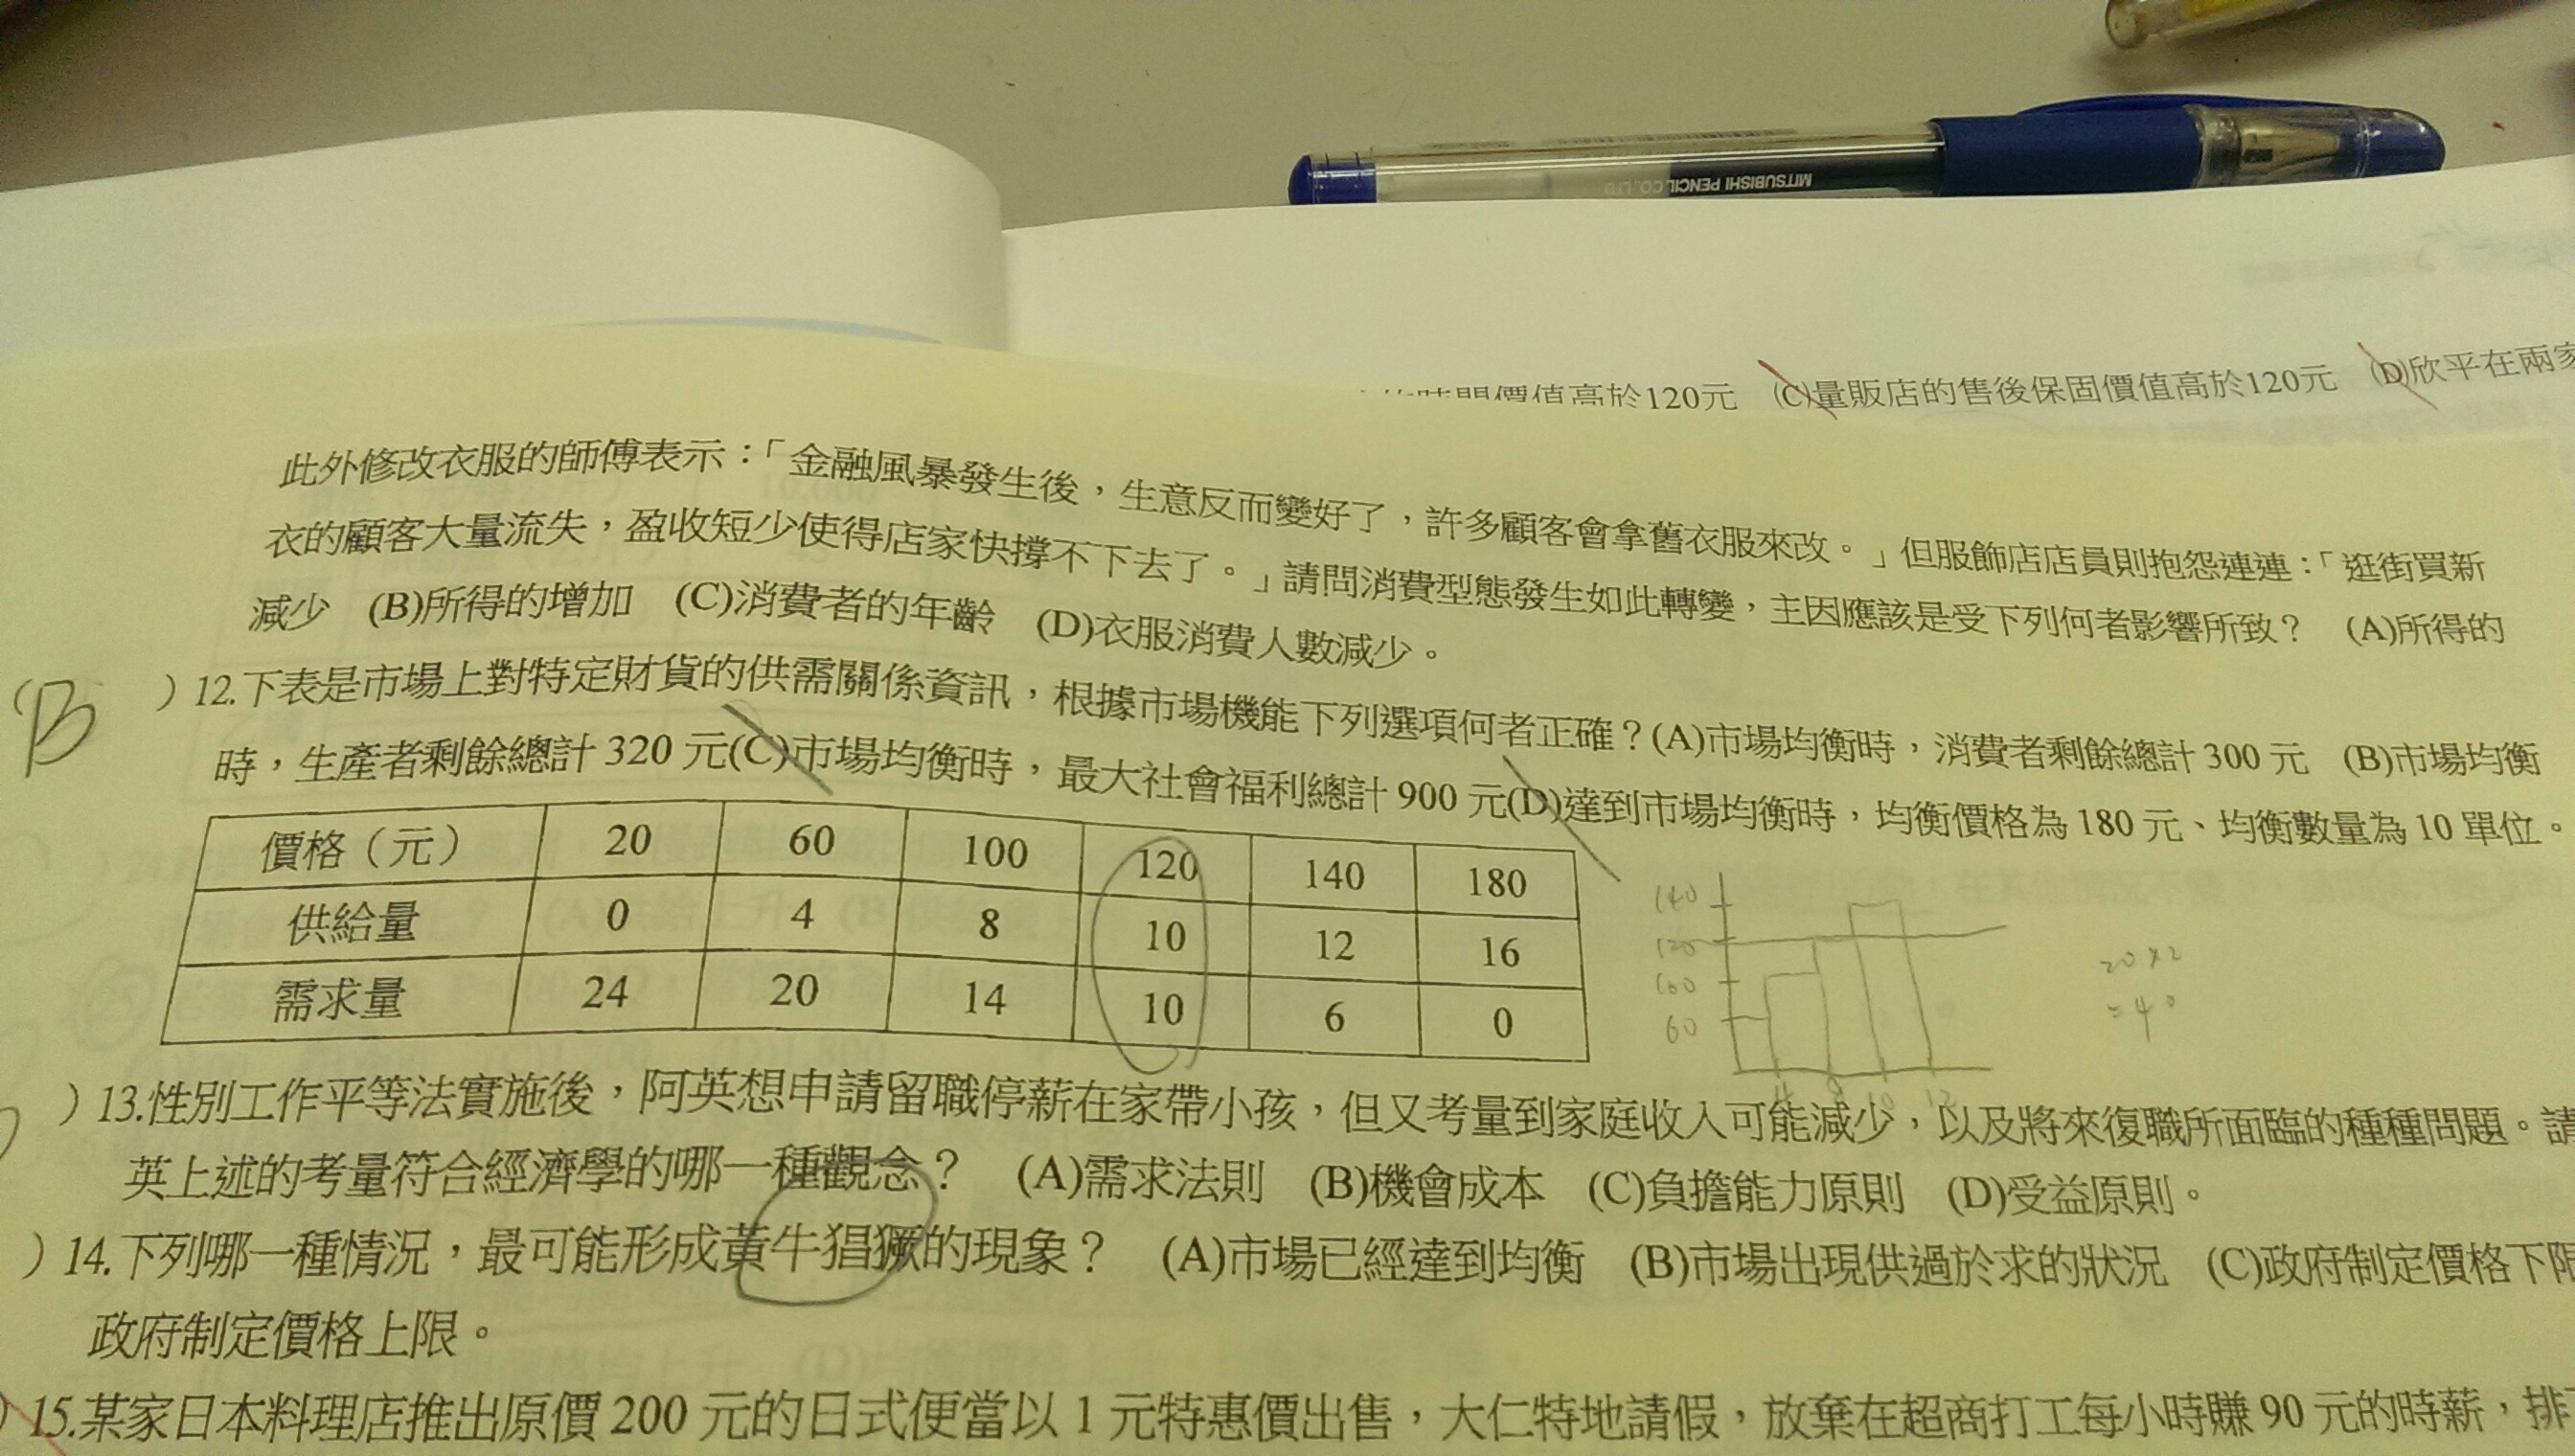 MITSUBISHI PENCIL CO., LTD
時間價值高於120元 (C)量販店的售後保固價值高於120元 (D)欣平在兩家
此外修改衣服的師傅表示:「金融風暴發生後,生意反而變好了,許多顧客會拿舊衣服來改。」但服飾店店員則抱怨連連:「逛街買新
衣的顧客大量流失,盈收短少使得店家快撐不下去了。」請問消費型態發生如此轉變,主因應該是受下列何者影響所致? (A)所得的
減少 (B)所得的增加 (C)消費者的年齡 (D)衣服消費人數減少。
B )12.下表是市場上對特定財貨的供需關係資訊,根據市場機能下列選項何者正確?(A)市場均衡時,消費者剩餘總計300元 (B)市場均衡
時,生產者剩餘總計320元(C)市場均衡時,最大社會福利總計900元(D)達到市場均衡時,均衡價格為180元、均衡數量為10單位。
價格(元) 20 60 100 120 140 180
供給量 0 4 8 10 12 16
需求量 24 20 14 10 6 0
140
120
100
60
4 8 10 12
20×2
=40
)13.性別工作平等法實施後,阿英想申請留職停薪在家帶小孩,但又考量到家庭收入可能減少,以及將來復職所面臨的種種問題。請
英上述的考量符合經濟學的哪一種觀念? (A)需求法則 (B)機會成本 (C)負擔能力原則 (D)受益原則。
)14.下列哪一種情況,最可能形成黃牛猖獗的現象? (A)市場已經達到均衡 (B)市場出現供過於求的狀況 (C)政府制定價格下限
政府制定價格上限。
)15.某家日本料理店推出原價200元的日式便當以1元特惠價出售,大仁特地請假,放棄在超商打工每小時賺90元的時薪,排